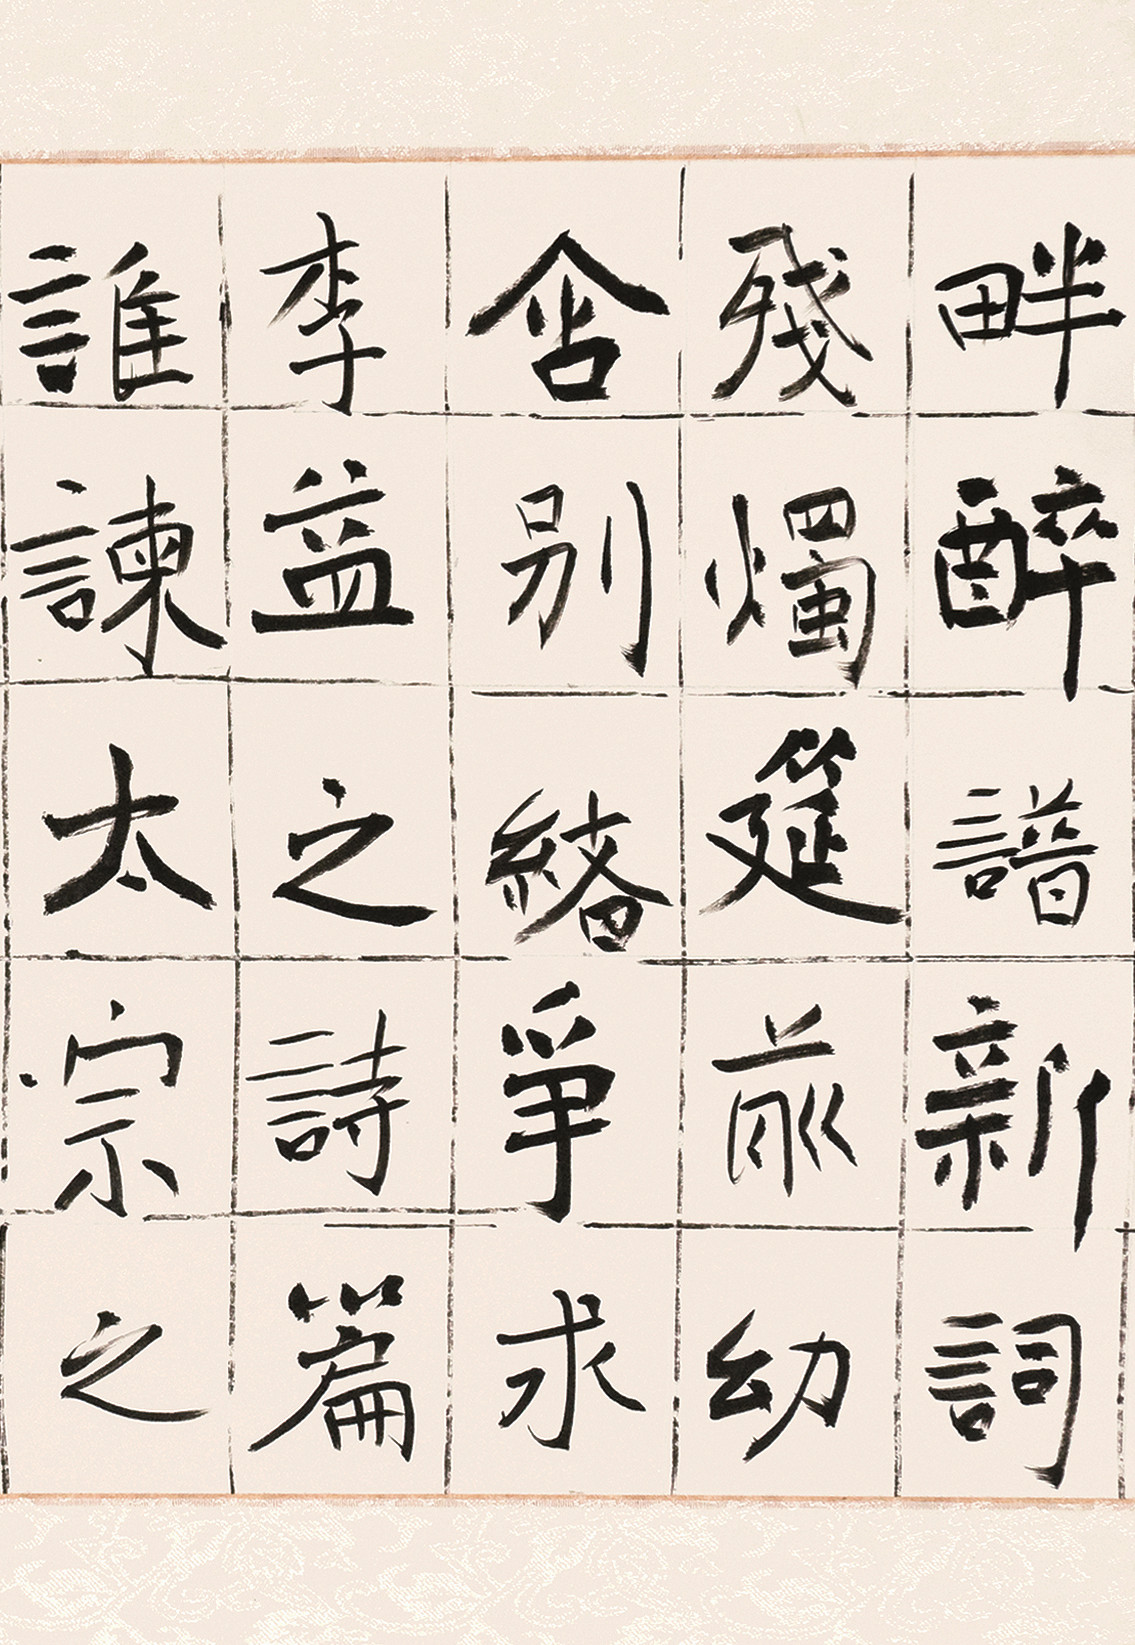 畔醉譜新詞
殘燭筵前幼
含別綹爭求
李益之詩篇
誰諫太宗之